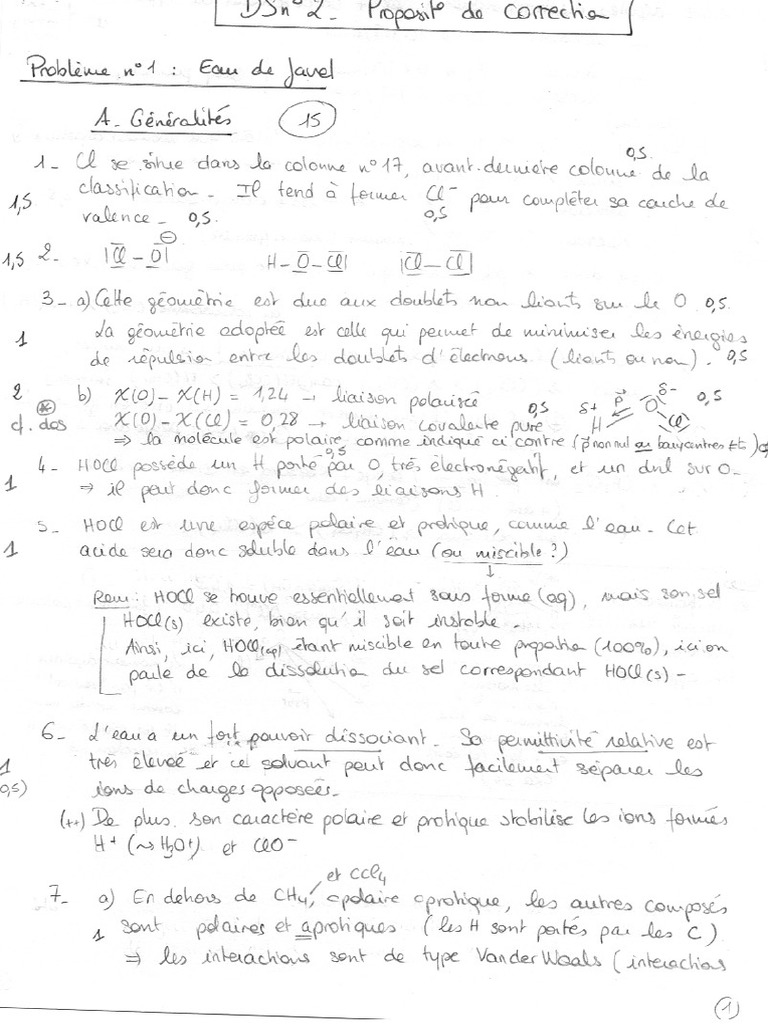 DS n°2 - Propositº de correction
Problème n°1 : Eau de Javel
A - Généralités 15
1 - Cl se situe dans la colonne n°17, avant-dernière colonne de la 0,5
classification - Il tend à former Cl⁻ pour compléter sa couche de
1,5 valence - 0,5. 0,5
1,5 2 - |Cl - O|⊖ H - O - Cl| |Cl - Cl|
3 - a) Cette géométrie est due aux doublets non liants sur le O 0,5.
1 La géométrie adoptée est celle qui permet de minimiser les énergies
de répulsion entre les doublets d'électrons (liants ou non). 0,5
2 b) χ(O) - χ(H) = 1,24 → liaison polarisée 0,5 δ+ H p O δ- Cl 0,5
cf. dos χ(O) - χ(Cl) = 0,28 → liaison covalente pure
⇒ la molécule est polaire, comme indiqué ci contre (p non nul ou barycentres ≠ts) 0,5
4 - HOCl possède un H porté par O, très électronégatif, et un dnl sur O -
1 ⇒ il peut donc former des liaisons H.
5 - HOCl est une espèce polaire et protique, comme l'eau - Cet
1 acide sera donc soluble dans l'eau (ou miscible ?)
Rem : HOCl se trouve essentiellement sous forme (aq), mais son sel
HOCl(s) existe, bien qu'il soit instable -
Ainsi, ici, HOCl(aq) étant miscible en toute proportion (100%), ici on
parle de la dissolution du sel correspondant HOCl(s) -
6 - L'eau a un fort pouvoir dissociant - Sa permittivité relative est
1 très élevée et ce solvant peut donc facilement séparer les
0,5) ions de charges opposées -
(++) De plus, son caractère polaire et protique stabilise les ions formés
H⁺ (⇝ H₃O⁺) et ClO⁻
et CCl₄
7 - a) En dehors de CH₄, apolaire aprotique, les autres composés
1 sont polaires et aprotiques (les H sont portés par les C)
⇒ les interactions sont de type Van der Waals (interactions
(1)